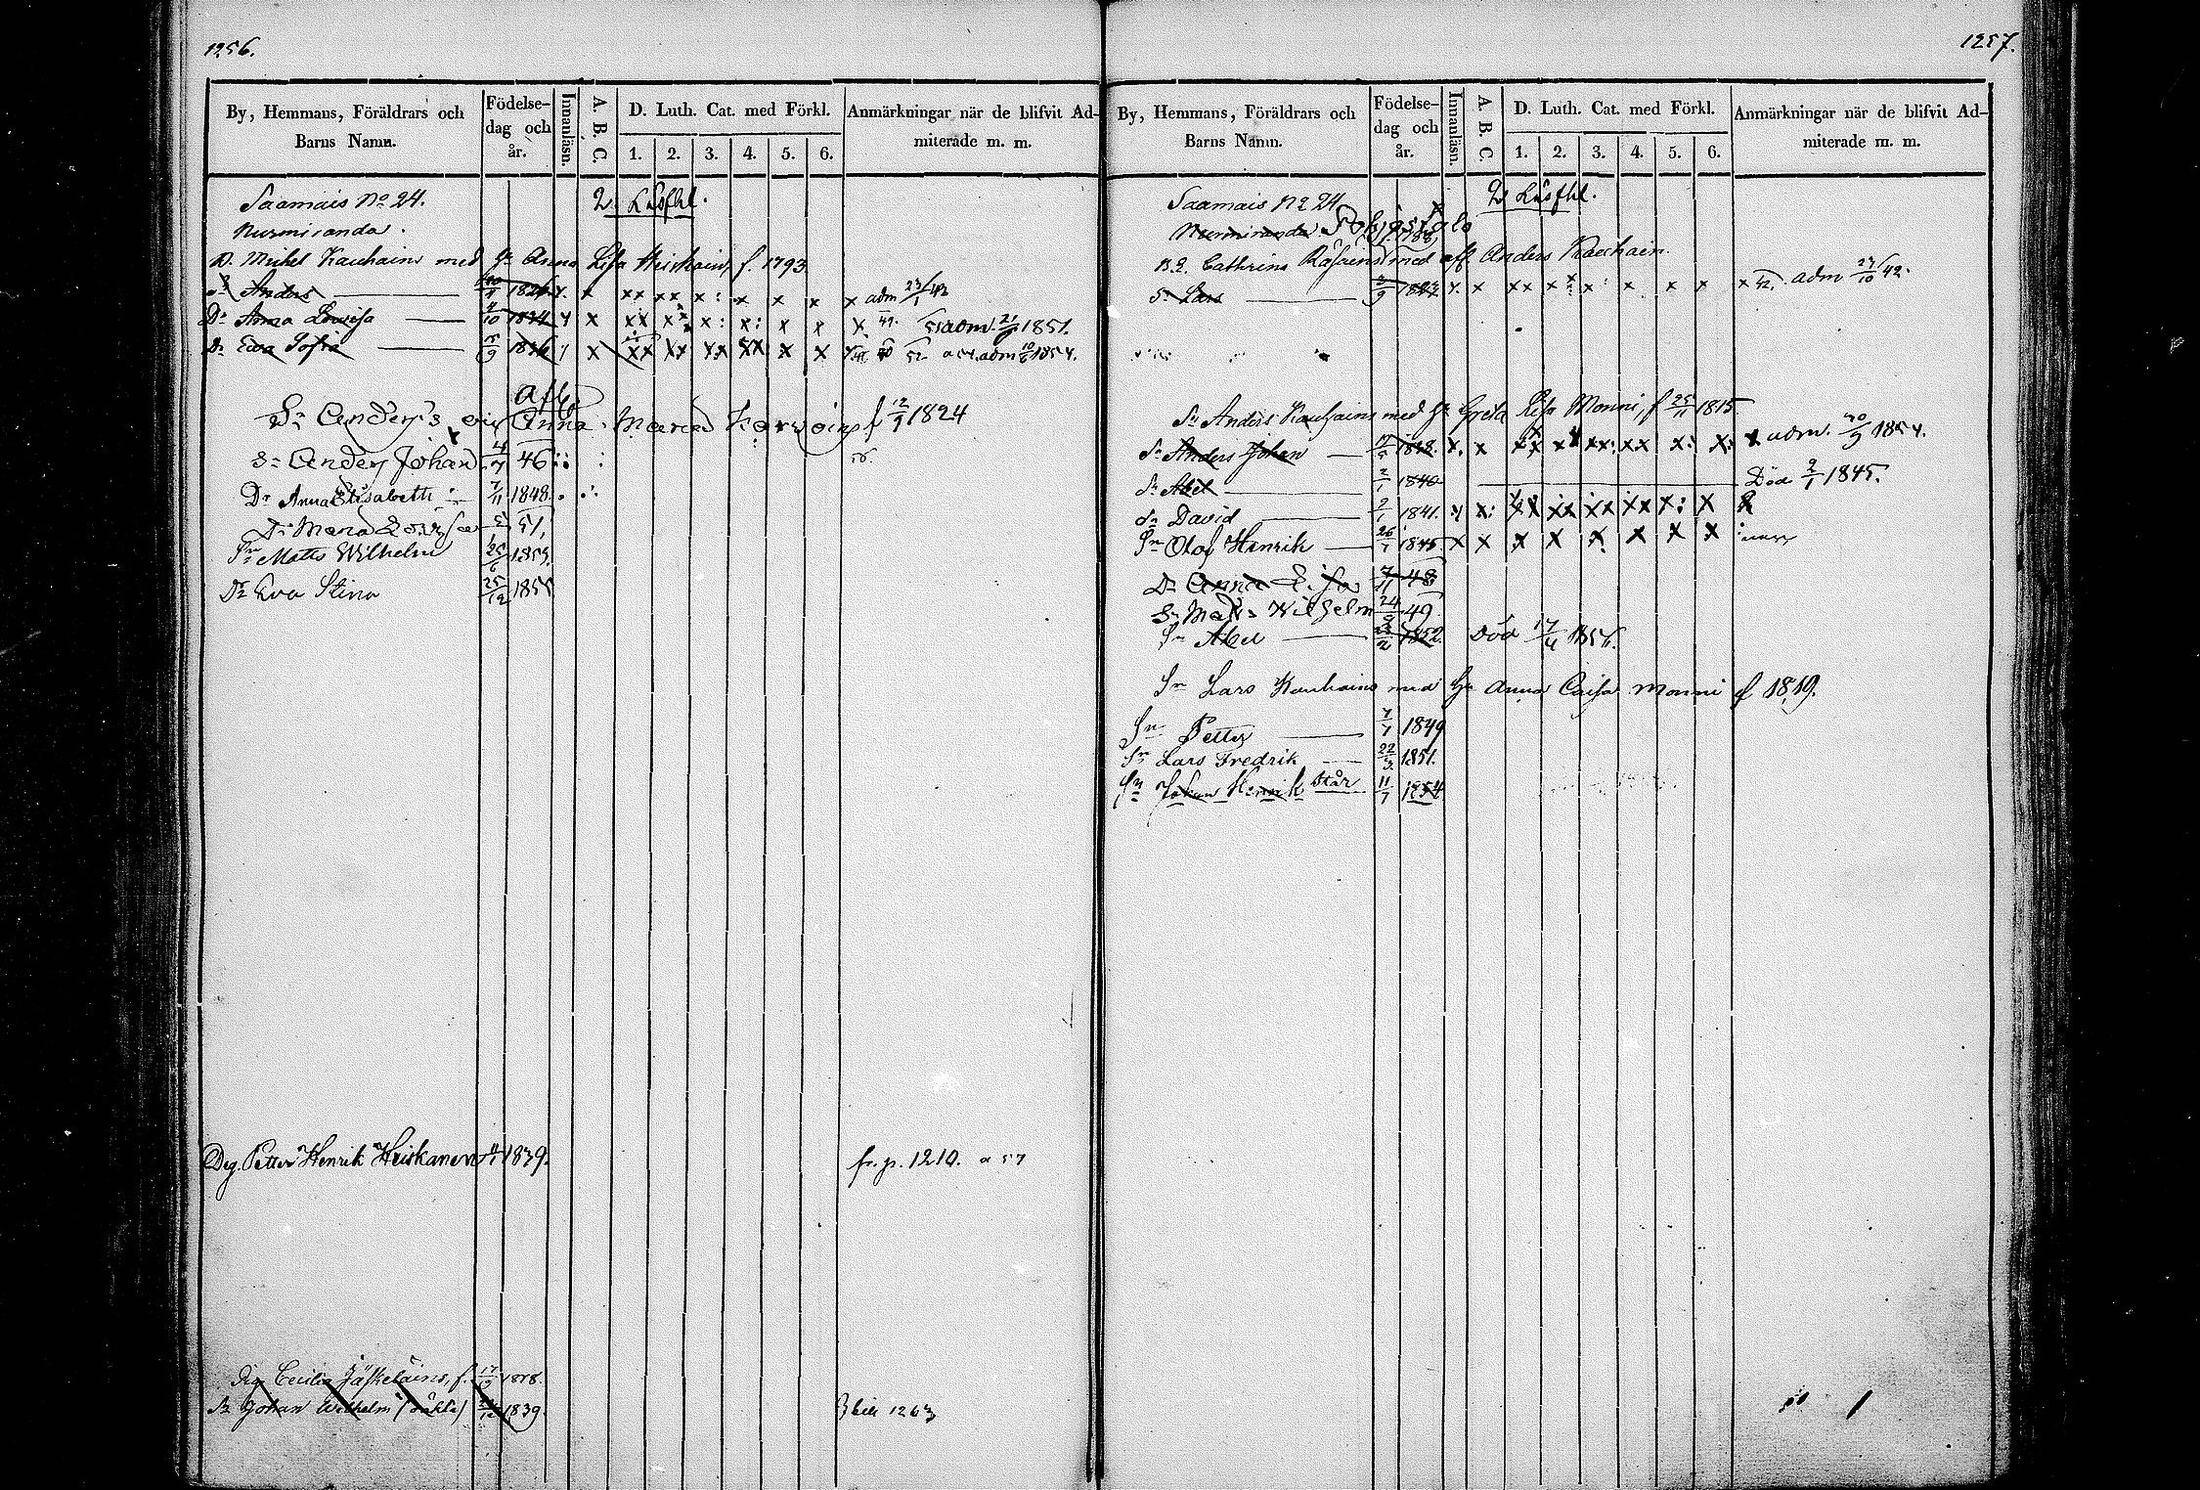 1256.
By, Hemmans, Föräldrars och Barns Namn. Födelse-dag och år. Innanläsn. A. B. C. D. Luth. Cat. med Förkl. 1. 2. 3. 4. 5. 6. Anmärkningar när de blifvit Ad-miterade m. m.
Saamais No 24. 2. Läsfhl.
Nurmiranda.
B. Michel Kauhains med Hu Anna Lisa Heiskain, f. 1793
Sn Anders x x x x x x : x x x x adm 23/1 43
Dr Anna Lovisa 4/10 1834 x x x x x : x : x x x 49. 51 adm. 21/9 1851.
Dr Ewa Sofia 15/9 1836 x x x x x x x x x x x 52 adm 10/6 1854.
Sn Anders's Anna Maria f 12/1 1824
Sn Anders Johan 4/7 46 56.
Dr Anna Elisabeth 7/11 1848.
Dr Maria Lovisa 51,
Sn Matts Wilhelm 25/6 1853.
Dr Eva Stina 25/12 1855
Dräg. Petter Henrik Heiskanen 1839. fr. p. 1210. a 57
Pig. Cecilia Jäskeläins, f. 17/9 1818.
Sn Johan Wilhelm (oäkta) 1839. 1263
1257.
By, Hemmans, Föräldrars och Barns Namn. Födelse-dag och år. Innanläsn. A. B. C. D. Luth. Cat. med Förkl. 1. 2. 3. 4. 5. 6. Anmärkningar när de blifvit Ad-miterade m. m.
Saamais No 24 2 Läsfhl.
Nurmiranda Pohjastalo
Cathrina Räsäins med aff. Anders Kauhain.
Sn Lars 2/9 1827 x x x x x : x x x x 42. adm 23/10 42.
Sn Anders Kauhains med Hu Greta Lisa Monni, f 25/11 1815
Sn Anders Johan 1838. x. x x x x x x : x x x : x : x adm. 30/9 1854.
Sn Abel 2/1 1840 Död 2/1 1845.
Sn David 2/1 1841. x x : x x x x x x x x x : x
Sn Olof Henrik 26/7 1845 x x x x x x x x
Dr Anna Lisa 7/11 48
Sn Matts Wilhelm 24/9 49
Sn Abel 1852. Död 17/4 1856.
Sn Lars Kauhains med Hu Anna Caisa Monni f 1819.
Sn Petter 7/7 1849
Sn Lars Fredrik 22/3 1851.
Sn Johan Henrik står 11/7 1854